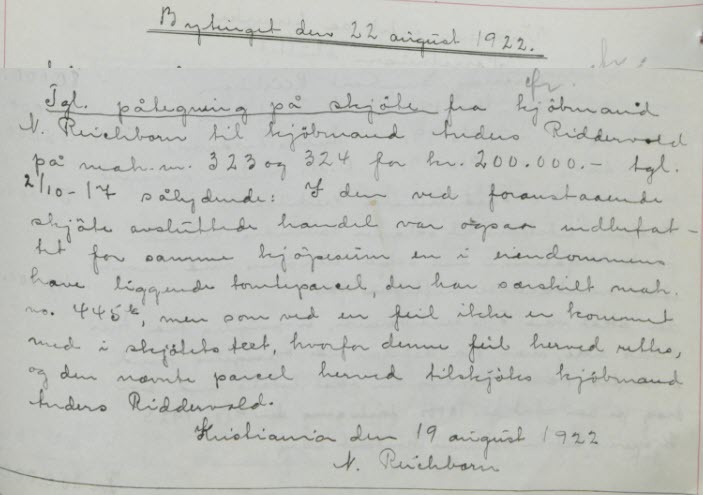 Bytinget den 22 august 1922.
fr.
Tgl. påtegning på skjöte fra kjöbmand
N. Reichborn til kjöbmand Anders Riddervold
på mah. nr. 323 og 324 for kr. 200.000.- tgl.
2/10-17 sålydende: I den ved foranstaaende
skjöte avsluttede handel var ogsaa indbefat-
tet for samme kjöpesum en i eiendommens
have liggende tomteparcel, der har særskilt mah.
no. 445b, men som ved en feil ikke er kommet
med i skjötets text, hvorfor denne feil herved rettes,
og den nævnte parcel herved tilskjötes kjöbmand
Anders Riddervold.
Kristiania den 19 august 1922
N. Reichborn